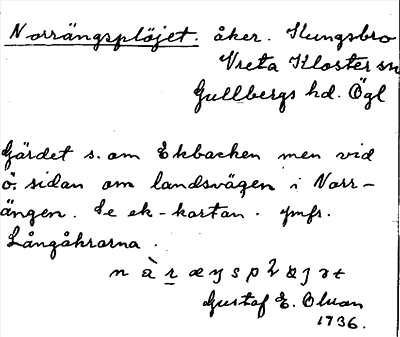 Norrängsplöjet. åker. Kungsbro
Vreta Kloster sn
Gullbergs hd. Ögl
Gärdet s. om Ekbacken men vid
ö. sidan om landsvägen i Norr-
ängen. Se ek-kartan. Jmfr.
Långåkrarna.
Gustaf E. Olson
1736.